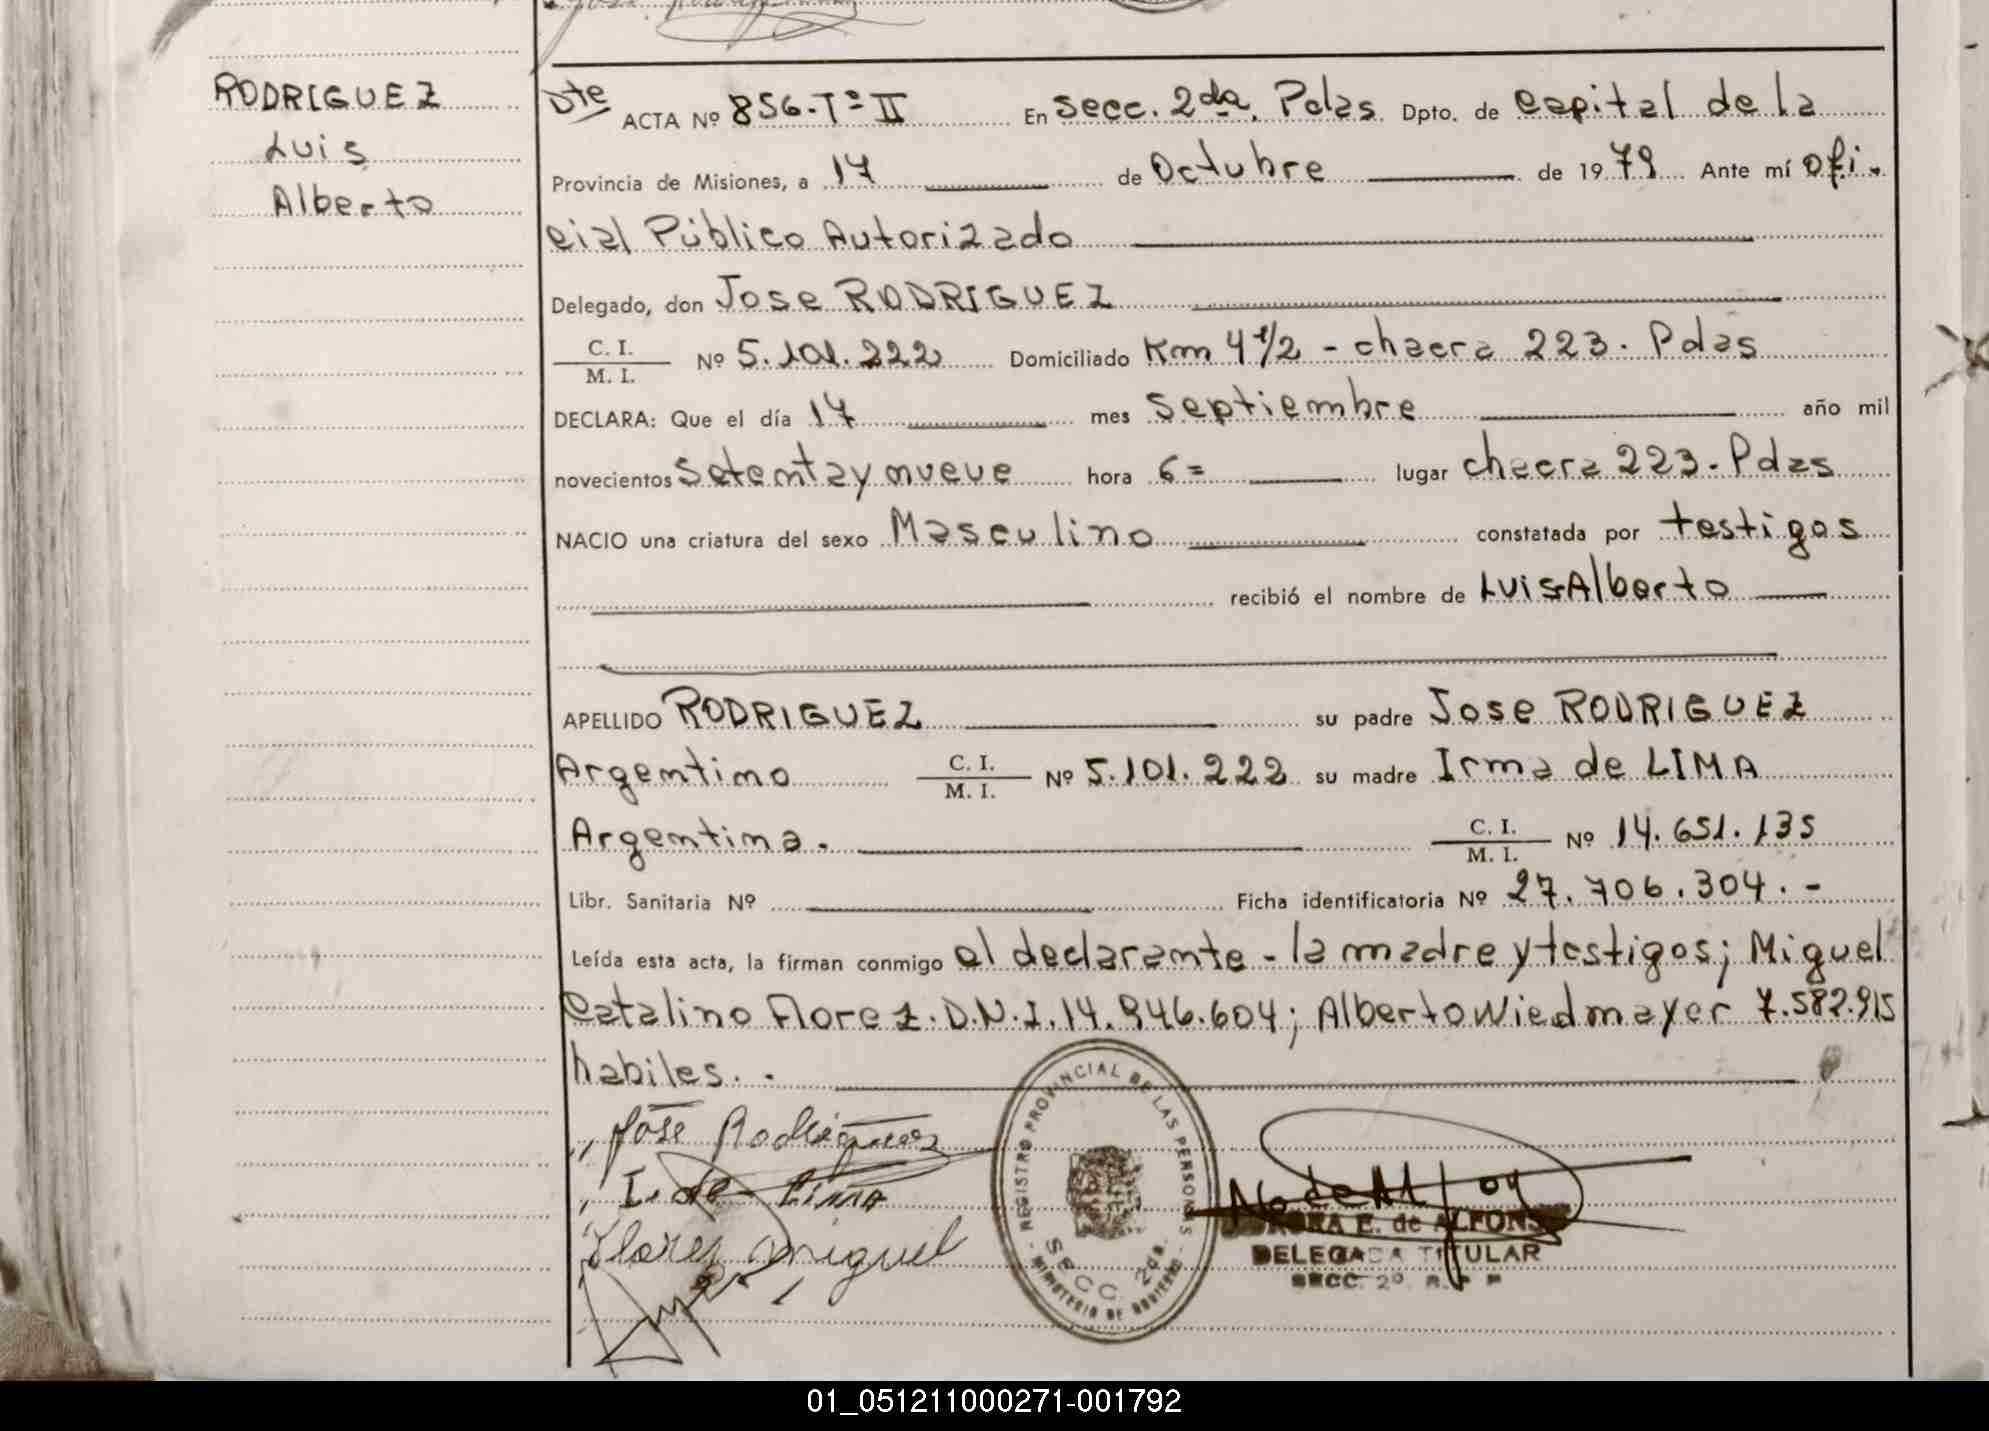 RODRIGUEZ
Luis
Alberto
Dte ACTA Nº 856-Tº II En Secc. 2da. Pdas Dpto. de Capital de la
Provincia de Misiones, a 17 de Octubre de 1979 Ante mí Ofi-
cial Público Autorizado
Delegado, don Jose RODRIGUEZ
C. I.
M. I. Nº 5.101.222 Domiciliado Km 4 1/2 - chacra 223. Pdas
DECLARA: Que el día 17 mes Septiembre año mil
novecientos Setenta y nueve hora 6= lugar chacra 223. Pdas
NACIO una criatura del sexo Masculino constatada por testigos
recibió el nombre de Luis Alberto
APELLIDO RODRIGUEZ su padre Jose RODRIGUEZ
Argentino C. I.
M. I. Nº 5.101.222 su madre Irma de LIMA
Argentina. C. I.
M. I. Nº 14.651.135
Libr. Sanitaria Nº Ficha identificatoria Nº 27.706.304.-
Leída esta acta, la firman conmigo el declarante - la madre y testigos; Miguel
Catalino Florez. D.N.I. 14.946.604; Alberto Wiedmayer 7.582.915
habiles.
José Rodriguez
I. de Lima
Flores Miguel
REGISTRO PROVINCIAL DE LAS PERSONAS
SECC. 2da.
MINISTERIO DE GOBIERNO
E. de ALFONSO
DELEGADA TITULAR
SECC. 2º R. P. P.
01_051211000271-001792